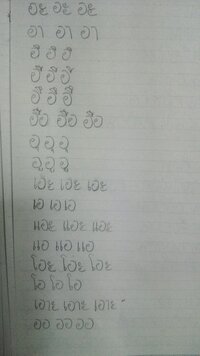 อะ อะ อะ
อา อา อา
อิ อิ อิ
อี อี อี
อึ อึ อึ
อือ อือ อือ
อุ อุ อุ
อู อู อู
เอะ เอะ เอะ
เอ เอ เอ
แอะ แอะ แอะ
แอ แอ แอ
โอะ โอะ โอะ
โอ โอ โอ
เอาะ เอาะ เอาะ
ออ ออ ออ